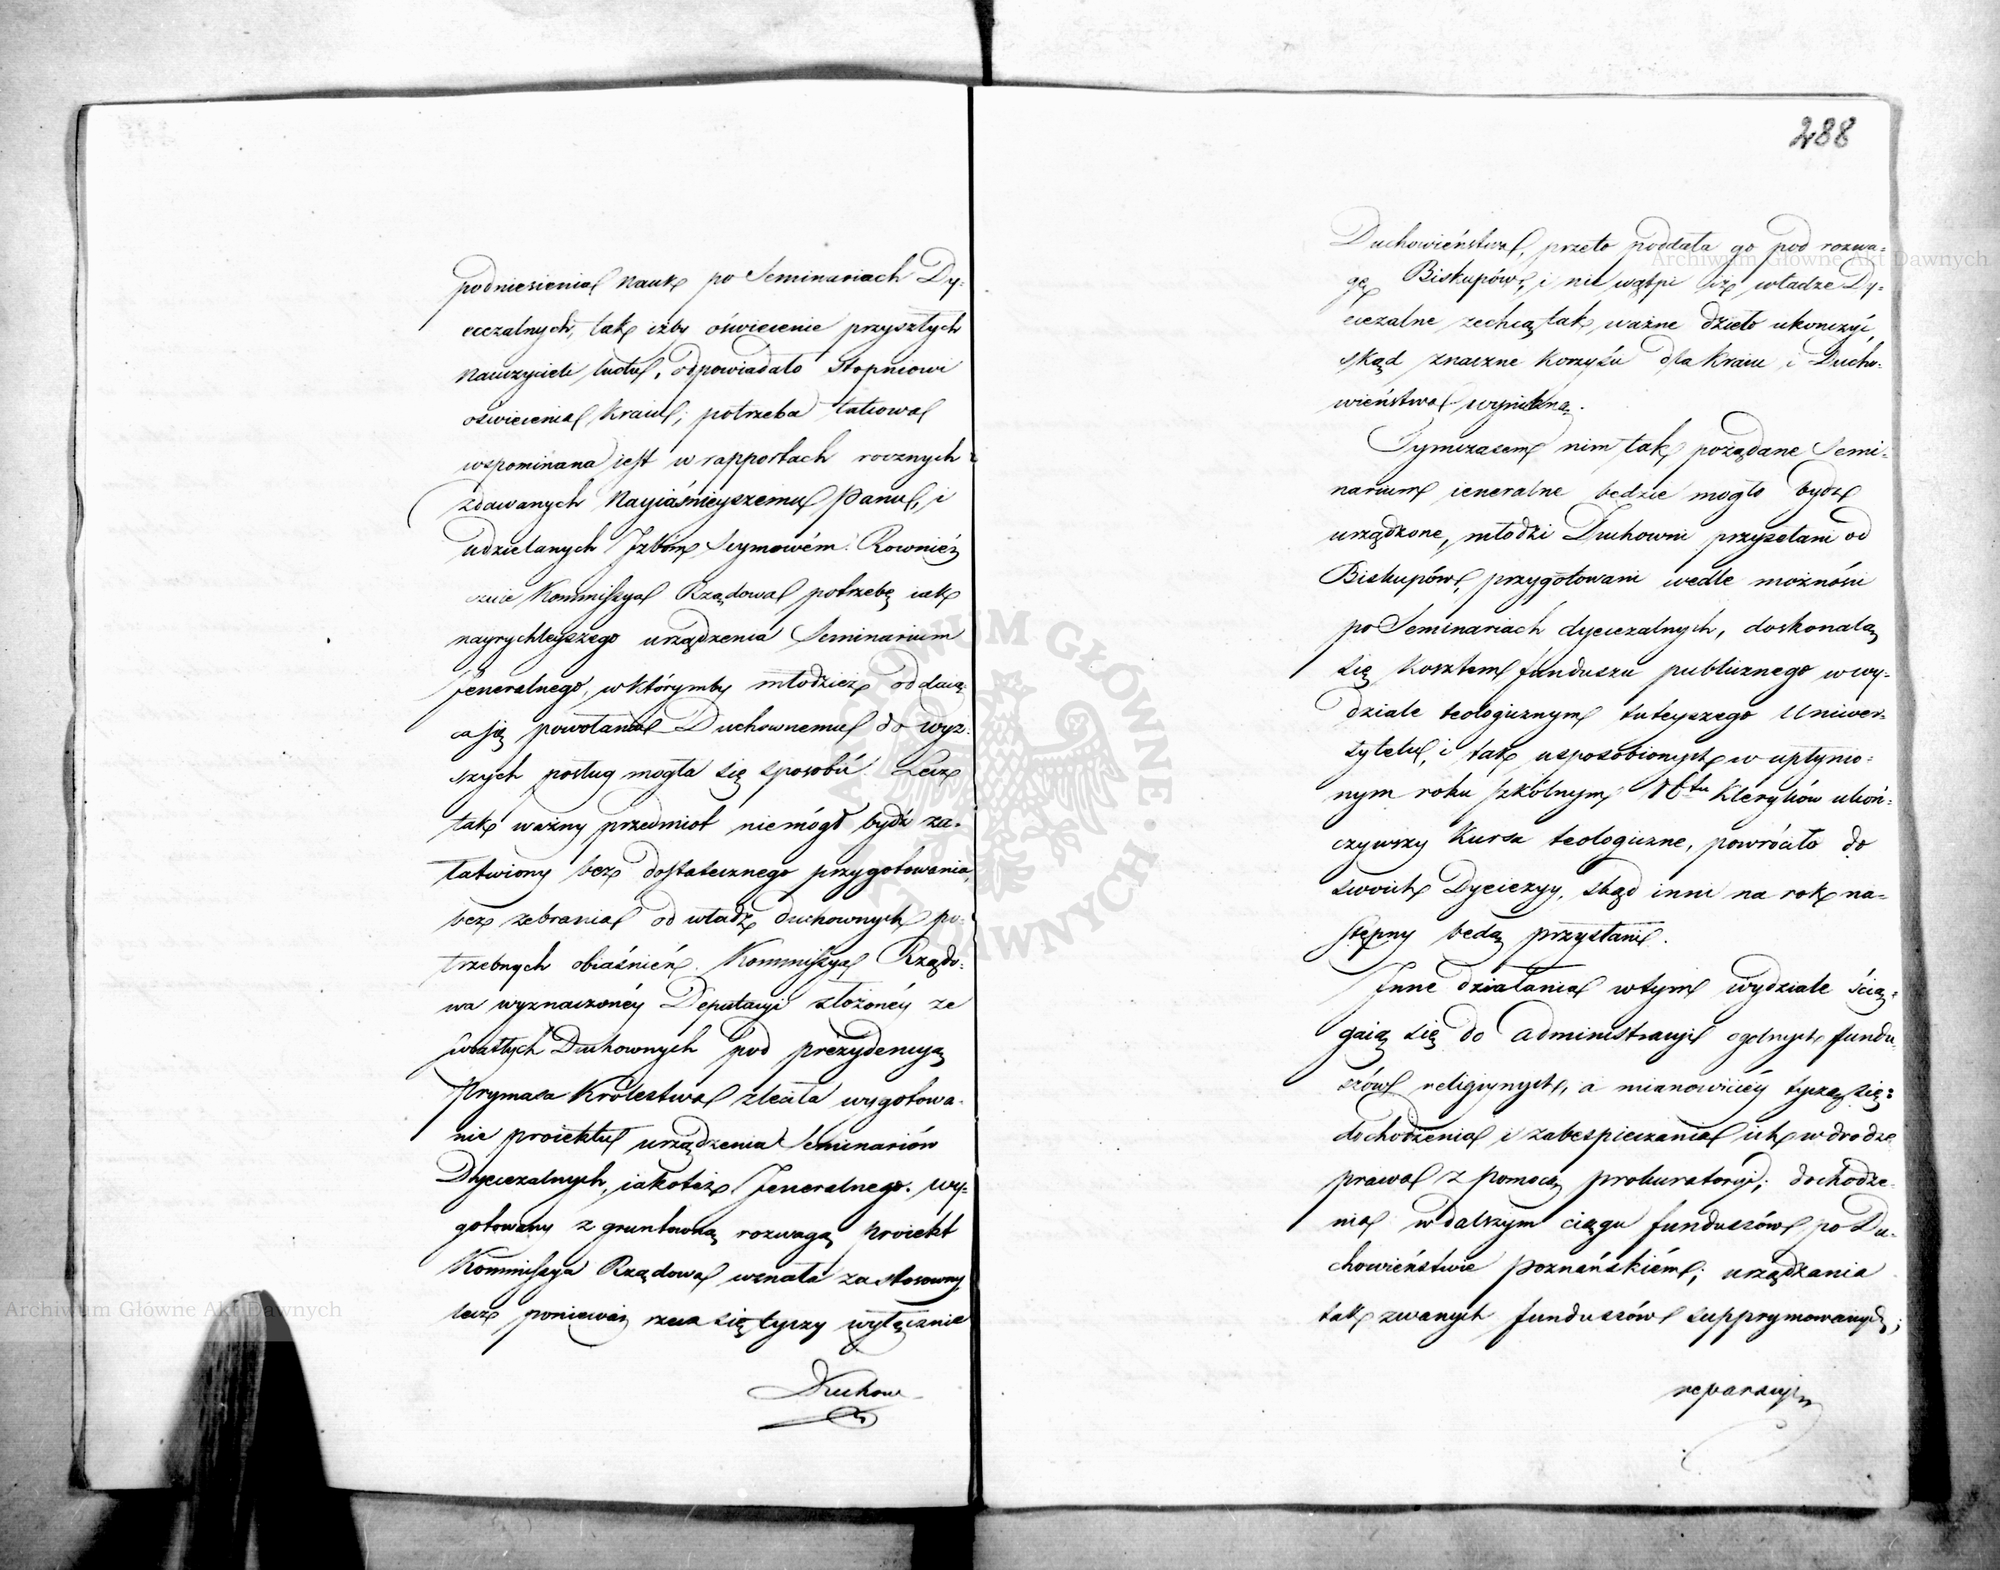 podniesienia nauk po Seminariach Dy-
ecezalnych, tak iżby oświecenie przyszłych
Nauczycieli ludu, odpowiadało Stopniowi
oświecenia kraiu; potrzeba takowa
wspominana iest w rapportach rocznych
zdawanych Nayiaśnieyszemu Panu, i
udzielanych Izbom Seymowém. Rownież
czuie Kommissya Rządowa potrzebę iak
nayrychleyszego urządzenia Seminarium
Jeneralnego, w którymby młodzież oddaią-
ca się powołaniu Duchownemu do wyż-
szych posług mogła się sposobić. Lecz
tak ważny przedmiot niemógł bydź za-
łatwiony bez dostatecznego przygotowania,
bez zebrania od władz duchownych po-
trzebnych obiaśnień. Kommissya Rządo-
wa wyznaczonéy Deputacyi złożonéy ze
światłych Duchownych pod prezydencyą
Prymasa Królestwa zleciła wygotowa-
nie proiektu urządzenia Seminariów
Dyecezalnych, iakoteż Jeneralnego. Wy-
gotowany z gruntowną rozwagą proiekt
Kommissya Rządowa uznała za stosowny
lecz ponieważ rzecz się tyczy wyłącznie
Duchow-
288
Duchowieństwa, przeto poddała go pod rozwa-
gę Biskupów, i nie wątpi iż władze Dy-
ecezalne zechcą tak ważne dzieło ukończyć,
skąd znaczne korzyści dla kraiu i Ducho-
wieństwa wynikną.
Tymczasem nim tak pożądane Semi-
narium ieneralne będzie mogło bydź
urządzone, młodzi Duchowni przysełani od
Biskupów, przygotowani wedle możności
po Seminariach dyecezalnych, doskonalą
się kosztem funduszu publicznego w wy-
dziale teologicznym tuteyszego Uniwer-
sytetu, i tak usposobionych w upłynio-
nym roku szkólnym 16tu Kleryków ukoń-
czywszy kursa teologiczne, powróciło do
swoich Dyecezyy, skąd inni na rok na-
stępny będą przysłani.
Inne działania w tym wydziale ścią-
gaią się do administracyi ogólnych fundu-
szów religiynych, a mianowicéy tyczą się:
dochodzenia i zabespieczania ich w drodze
prawa z pomocą prokuratoryi; dochodze-
nia w dalszym ciągu funduszów po Du-
chowieństwie Poznańskiém; urządzania
tak zwanych funduszów supprymowanych;
reparacyi
Archiwum Główne Akt Dawnych
Archiwum Główne Akt Dawnych
ARCHIWUM GŁÓWNE AKT DAWNYCH